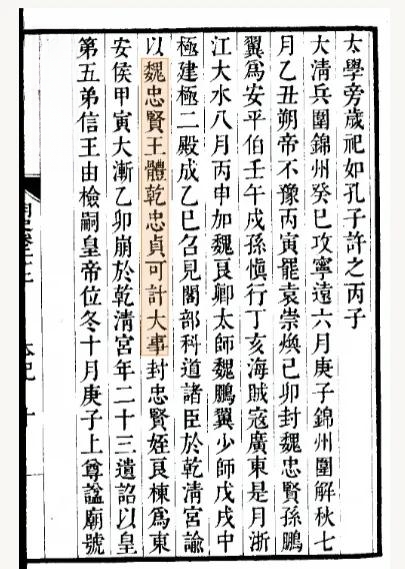 太學旁歲祀如孔子許之丙子
大清兵圍錦州癸巳攻寧遠六月庚子錦州圍解秋七
月乙丑朔帝不豫丙寅罷袁崇煥己卯封魏忠賢孫鵬
翼爲安平伯壬午戍孫愼行丁亥海賊寇廣東是月浙
江大水八月丙申加魏良卿太師魏鵬翼少師戊戌中
極建極二殿成乙巳召見閣部科道諸臣於乾淸宮諭
以魏忠賢王體乾忠貞可計大事封忠賢姪良棟爲東
安侯甲寅大漸乙卯崩於乾淸宮年二十三遺詔以皇
第五弟信王由檢嗣皇帝位冬十月庚子上尊諡廟號